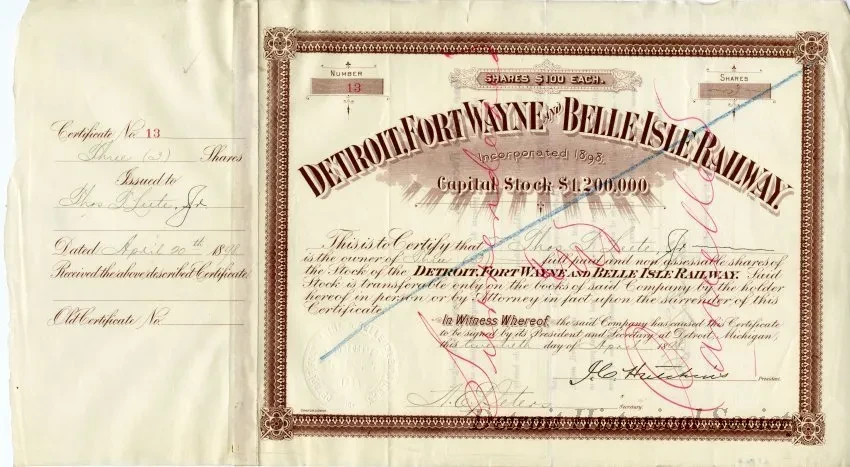 Certificate No. 13
Three (3) Shares
Issued to
Thos T. Leete, Jr
Dated April 20th 1898
Received the above described Certificate
Old Certificate No.
NUMBER
13
SHARES $100 EACH.
SHARES
3
DETROIT, FORT WAYNE AND BELLE ISLE RAILWAY.
Incorporated 1898.
Capital Stock $1,200,000
This is to Certify that Thos T. Leete Jr
is the owner of full paid and non assessable shares of
the Stock of the DETROIT, FORT WAYNE AND BELLE ISLE RAILWAY. Said
Stock is transferable only on the books of said Company by the holder
hereof in person or by Attorney in fact upon the surrender of this
Certificate
In Witness Whereof, the said Company has caused this Certificate
to be signed by its President and Secretary at Detroit, Michigan,
this twentieth day of April 1898
J.C. Hutchins President.
A.E. Peters Secretary.
Surrendered
Cancelled
Detroit Historical Society